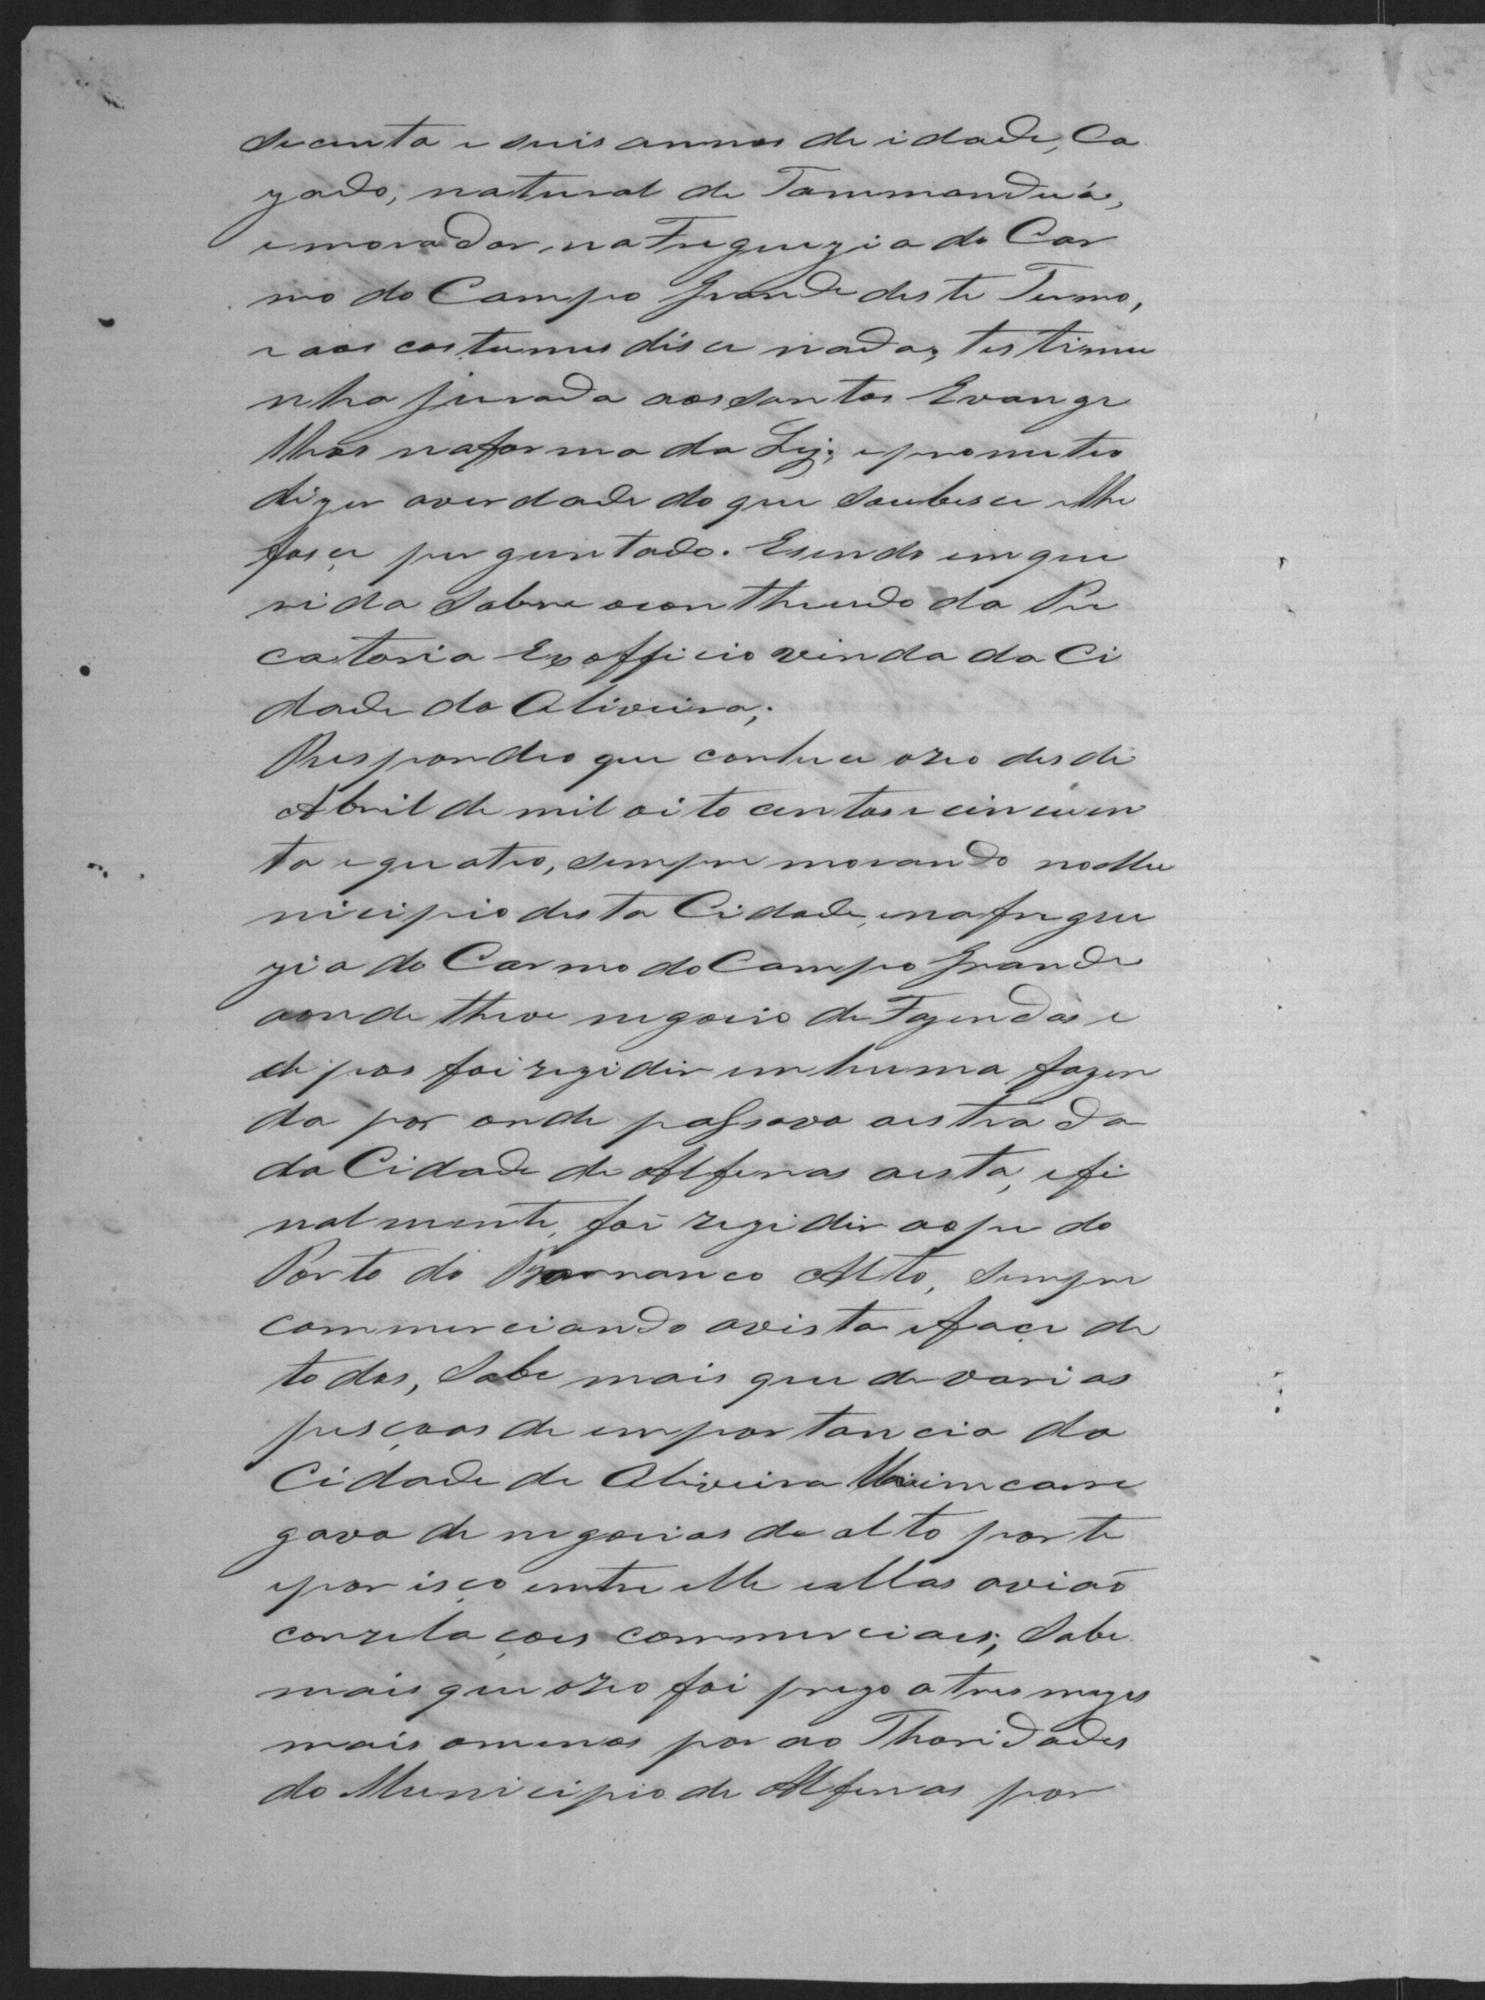 secenta e seis annos de idade, Ca
zado, natural de Tammanduá,
e morador, na Freguezia do Car
mo do Campo Grande deste Termo,
e aos costumes disce nada, testimu
nha jurada aos Santos Evange
lhos na forma da Lej; e prometeo
dizer averdade do que soubesce e lhe
fosce perguntado. Esendo emque
rida sobre ocontheudo da Pre
catoria Exofficio vinda da Ci
dade da Oliveira;
Respondeo que conhece o reo desde
Abril de mil oito centos e cincoen
ta e quatro, sempre morando no Mu
nicipio desta Cidade, e na fregue
zia do Carmo do Campo Grande
aonde theve negocio de Fazendas e
depois foi rezidir em huma fazen
da por onde passava aestrada
da Cidade de Alfenas aesta, e fi
nalmente, foi rezidir aopé do
Porto do Barranco Alto, sempre
commerciando avista e façe de
todos, Sabe mais que de varias
pesçoas de importancia da
Cidade de Oliveira lhe imcarre
gava de negocios de alto porte
e por isço entre elle e ellas avião
conrelaçoes commerciaes; Sabe
mais que o reo foi prezo a tres mezes
mais omenos por ao Thoridades
do Municipio de Alfenas por